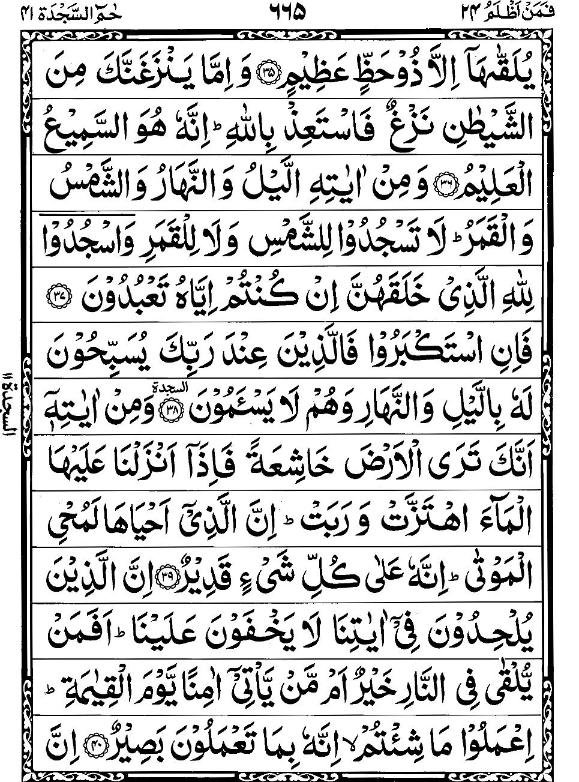 فمن اظلم ٢٤ ٦٦٥ حٰم السجدة ٤١
يُلَقّٰىهَاۤ اِلَّا ذُوْ حَظٍّ عَظِيْمٍ ﴿٣٥﴾ وَ اِمَّا يَنْزَغَنَّكَ مِنَ
الشَّيْطٰنِ نَزْغٌ فَاسْتَعِذْ بِاللّٰهِ ؕ اِنَّهٗ هُوَ السَّمِيْعُ
الْعَلِيْمُ ﴿٣٦﴾ وَ مِنْ اٰيٰتِهِ الَّيْلُ وَ النَّهَارُ وَ الشَّمْسُ
وَ الْقَمَرُ ؕ لَا تَسْجُدُوْا لِلشَّمْسِ وَ لَا لِلْقَمَرِ وَ اسْجُدُوْا
لِلّٰهِ الَّذِيْ خَلَقَهُنَّ اِنْ كُنْتُمْ اِيَّاهُ تَعْبُدُوْنَ ﴿٣٧﴾
فَاِنِ اسْتَكْبَرُوْا فَالَّذِيْنَ عِنْدَ رَبِّكَ يُسَبِّحُوْنَ
لَهٗ بِالَّيْلِ وَ النَّهَارِ وَ هُمْ لَا يَسْـَٔمُوْنَ ﴿٣٨﴾ السجدة وَ مِنْ اٰيٰتِهٖۤ
السجدة ١١
اَنَّكَ تَرَى الْاَرْضَ خَاشِعَةً فَاِذَاۤ اَنْزَلْنَا عَلَيْهَا
الْمَآءَ اهْتَزَّتْ وَ رَبَتْ ؕ اِنَّ الَّذِيْۤ اَحْيَاهَا لَمُحْيِ
الْمَوْتٰى ؕ اِنَّهٗ عَلٰى كُلِّ شَيْءٍ قَدِيْرٌ ﴿٣٩﴾ اِنَّ الَّذِيْنَ
يُلْحِدُوْنَ فِيْۤ اٰيٰتِنَا لَا يَخْفَوْنَ عَلَيْنَا ؕ اَفَمَنْ
يُّلْقٰى فِي النَّارِ خَيْرٌ اَمْ مَّنْ يَّاْتِيْۤ اٰمِنًا يَّوْمَ الْقِيٰمَةِ ؕ
اِعْمَلُوْا مَا شِئْتُمْ ۙ اِنَّهٗ بِمَا تَعْمَلُوْنَ بَصِيْرٌ ﴿٤٠﴾ اِنَّ